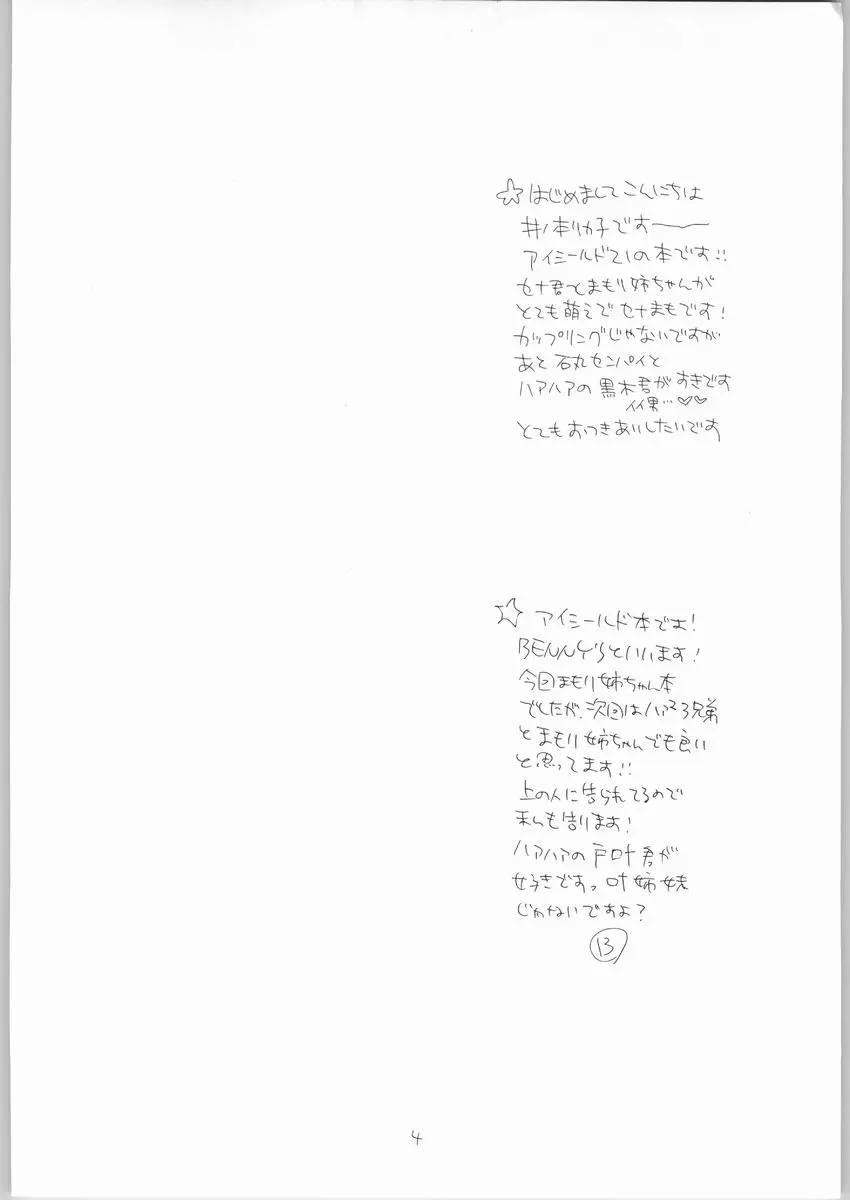 ☆はじめましてこんにちは
井ノ本リカ子です〜
アイシールド21の本です!!
セナ君とまもり姉ちゃんが
とても萌えでセナまもです!
カップリングじゃないですが
あと石丸センパイと
ハアハアの黒木君がすきです
イイ男…♡♡
とてもおつきあいしたいです
☆アイシールド本です!
BENNY'Sといいます!
今回まもり姉ちゃん本
でしたが、次回はハァ×3兄弟
とまもり姉ちゃんでも良い
と思ってます!!
上の人に告られてるので
私も告ります!
ハアハアの戸叶君が
好きですっ叶姉妹
じゃないですよ?
13
4